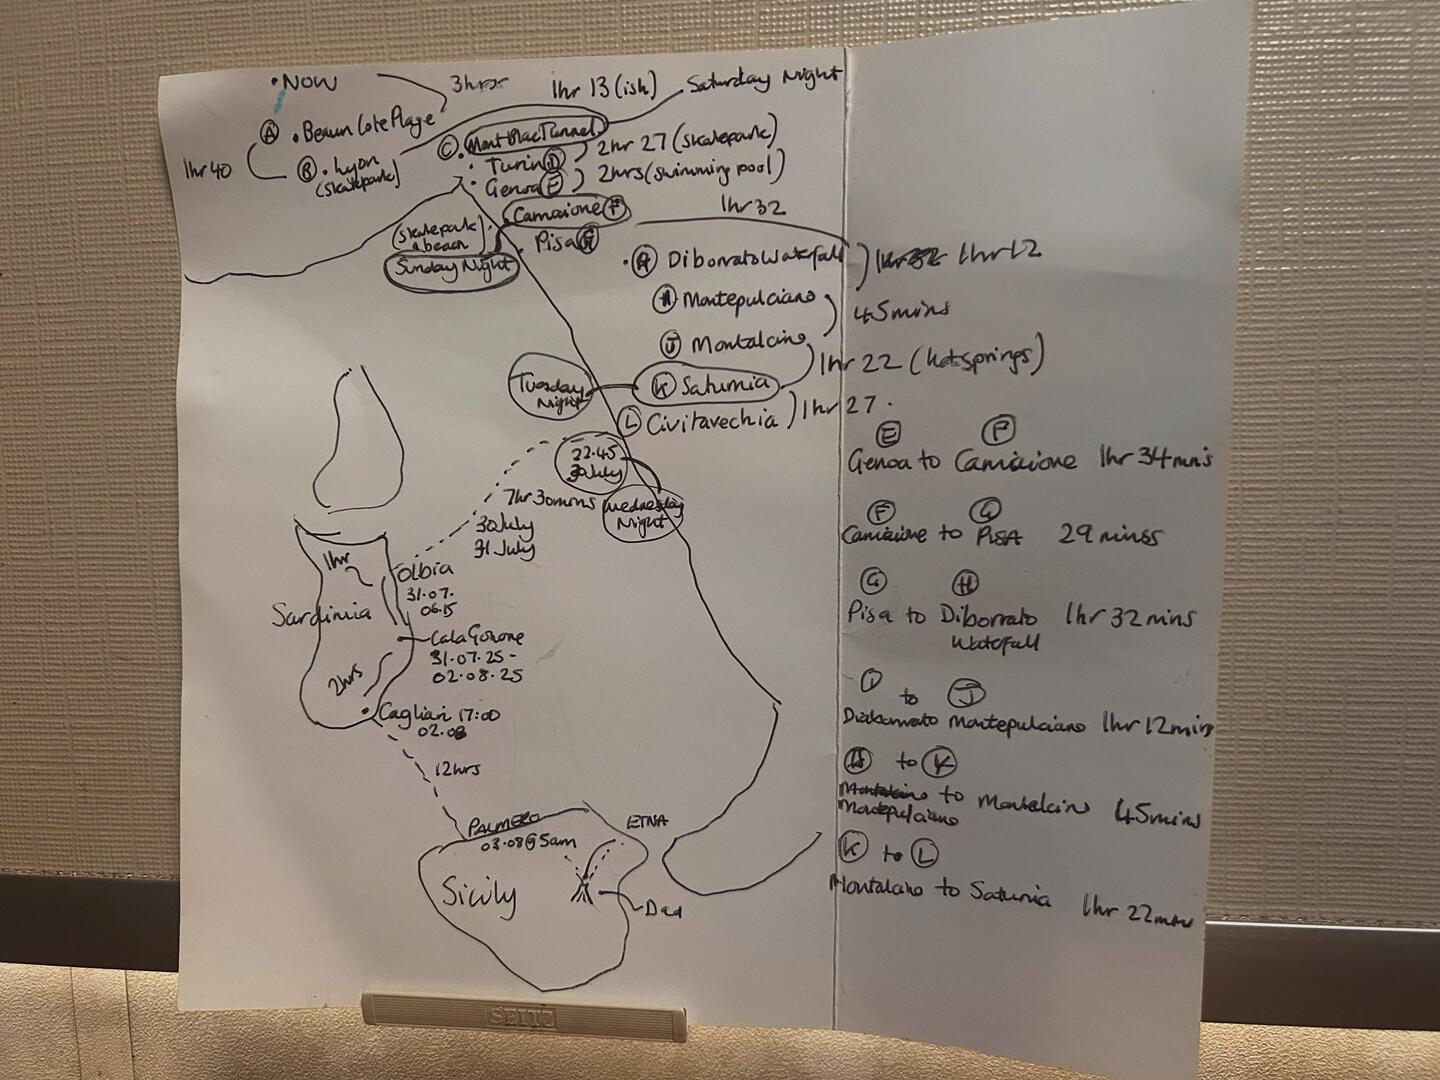 •NOW
3hrs
1hr 13 (ish)
Saturday Night
A • Beaun Cote Plage
1hr 40
B • Lyon
(skatepark)
C • Mont Blac Tunnel
• Turin D
2hr 27 (skatepark)
• Genoa E
2hrs (swimming pool)
Camaione F
1hr 32
(skatepark)
& beach
• Pisa G
Sunday Night
• H Diborrato Waterfall
1hr 12
Montepulciano
45mins
J Montalcino
1hr 22 (hotsprings)
Tuesday
Night
K Saturnia
L Civitavechia
1hr 27.
22.45
30 July
7hr 30mins
Wednesday
Night
30 July
31 July
E F
Genoa to Camaione 1hr 34 mins
F G
Camaione to PISA 29 minss
G H
Pisa to Diborrato 1hr 32 mins
Waterfall
I to J
Montepulciano 1hr 12 mins
to K
to Montalcino 45mins
Montepulciano
K to L
Montalcino to Saturnia 1hr 22 mins
1hr
Olbia
31.07.
06.15
Sardinia
Cala Gonone
31.07.25 -
02.08.25
2hrs
Cagliari 17:00
02.08
12hrs
PALMERO
03.08@5am
ETNA
Sicily
Dad
SEITZ